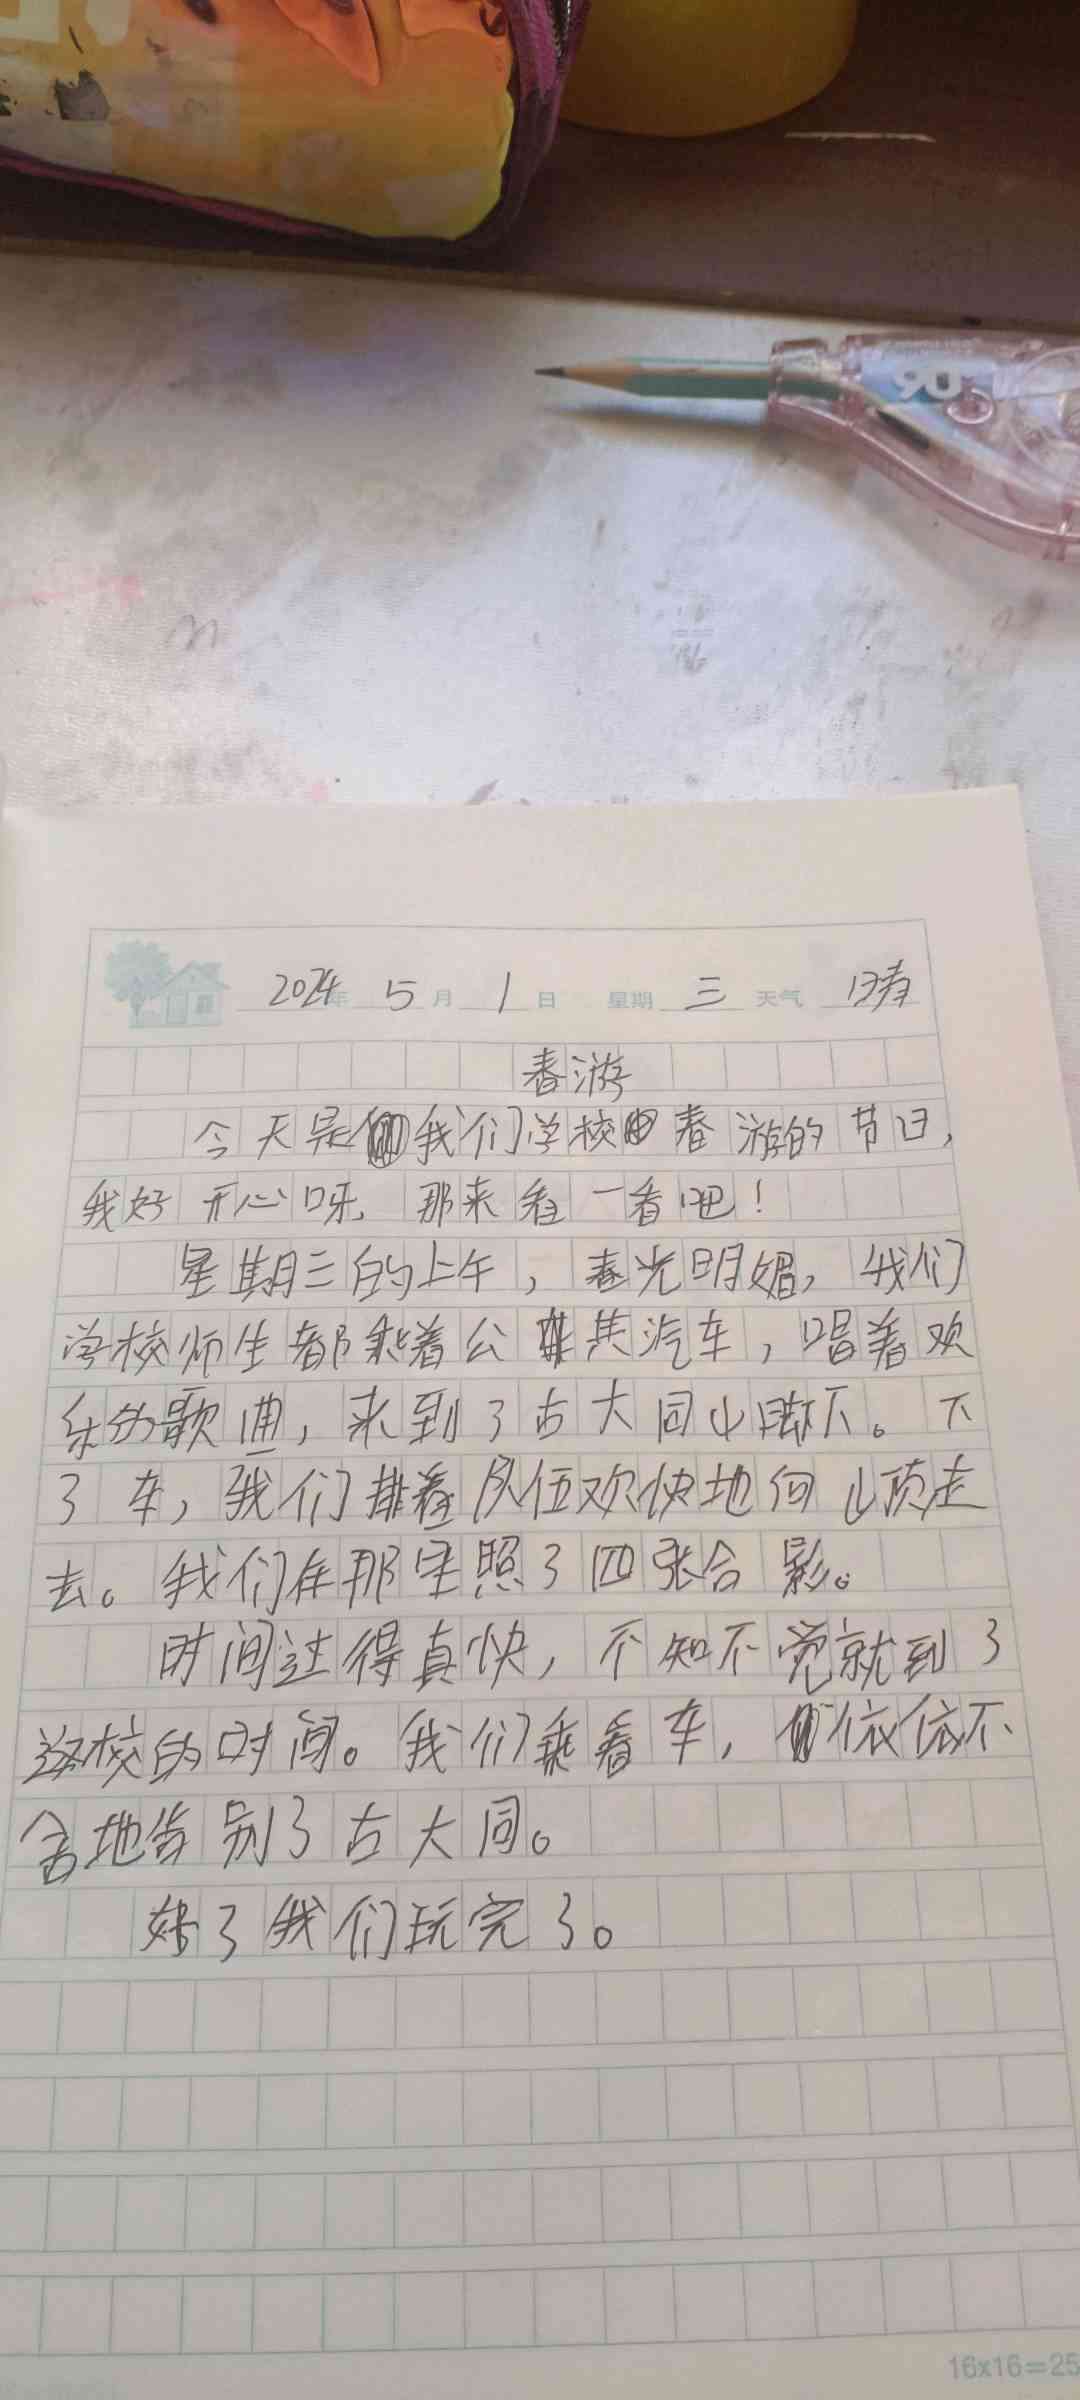 2024年 5月 1日 星期三 天气 晴
春游
今天是我们学校春游的节日，
我好开心呀，那来看一看吧！
星期三的上午，春光明媚，我们
学校师生都乘着公共汽车，唱着欢
乐的歌曲，来到了古大同山脚下。下
了车，我们排着队伍欢快地向山顶走
去。我们在那里照了四张合影。
时间过得真快，不知不觉就到了
返校的时间。我们乘着车，依依不
舍地告别了古大同。
好了我们玩完了。
16x16=25